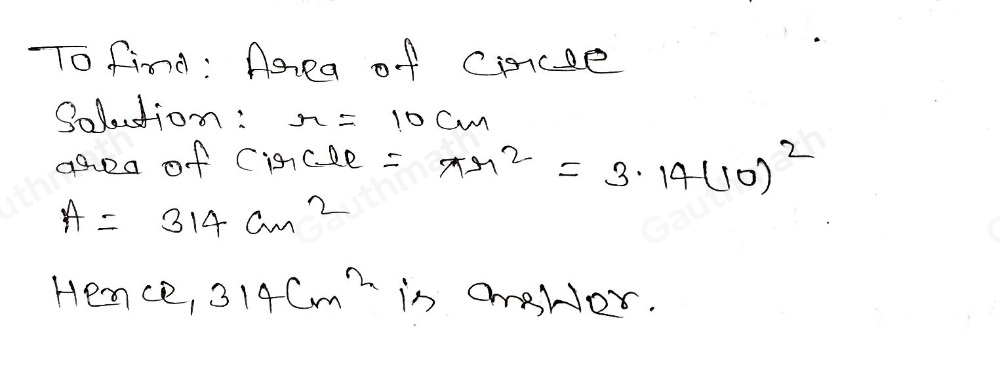 To find: Area of Circle
Solution: r = 10 cm
area of Circle = πr² = 3.14(10)²
A = 314 cm²
Hence, 314 Cm² is answer.
Gauthmath